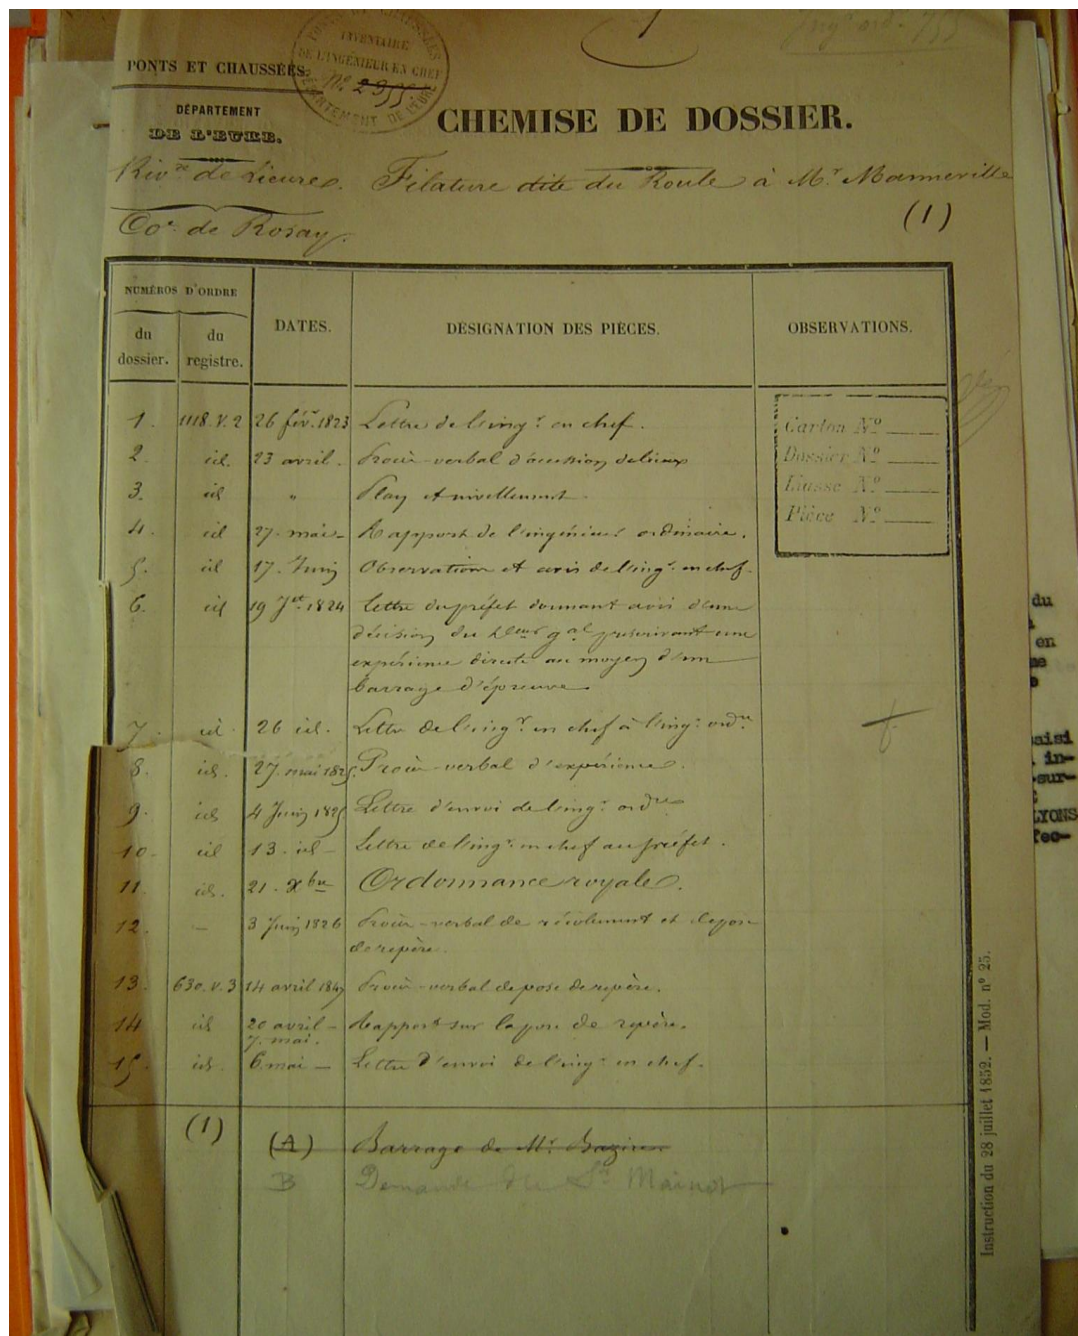 PONTS ET CHAUSSÉES
INVENTAIRE
DE L'INGÉNIEUR EN CHEF
No. 2955
DÉPARTEMENT DE L'EURE
PONTS ET CHAUSSÉES.
DÉPARTEMENT
DE L'EURE.
CHEMISE DE DOSSIER.
Rivre de Lieure. Filature dite du Roule à Mr. Manneville
(1)
Coe. de Rosay.
NUMÉROS D'ORDRE
du dossier. du registre. DATES. DÉSIGNATION DES PIÈCES. OBSERVATIONS.
1. 1118. V. 2 26 févr. 1823 Lettre de l'ingr. en chef.
2. id. 23 avril. Procès-verbal d'accession de lieux
3. id " Plan et nivellement.
4. id 27. mai - Rapport de l'ingénieur ordinaire.
5. id 17. Juin Observations et avis de l'ingr. en chef.
6. id 19 Jet 1824 Lettre du préfet donnant avis d'une
décision du Deur gal prescrivant une
expérience directe au moyen d'un
barrage d'épreuve
7. id. 26 id. Lettre de l'ingr en chef à l'ingr. ordre
8. id. 27. mai 1825. Procès-verbal d'expérience.
9. id 4 Juin 1825 Lettre d'envoi de l'ingr. ordre
10. id 13. id - Lettre de l'ingr. en chef au préfet.
11. id. 21. Xbre Ordonnance royale.
12. - 3 Juin 1826 Procès-verbal de récolement et de pose
de repère.
13. 630. V. 3 14 avril 1849 Procès-verbal de pose de repère.
14 id 20 avril - Rapport sur la pose de repère.
7. mai.
15. id. 6 mai - Lettre d'envoi de l'ingr. en chef.
Carton No
Dossier No
Liasse No
Pièce No
(1) (A) Barrage de Mr. Bazire
B Demande du Sr Mainot
Instruction du 28 juillet 1852. — Mod. no 25.
du
en
aisi
in-
sur-
LYONS
fec-